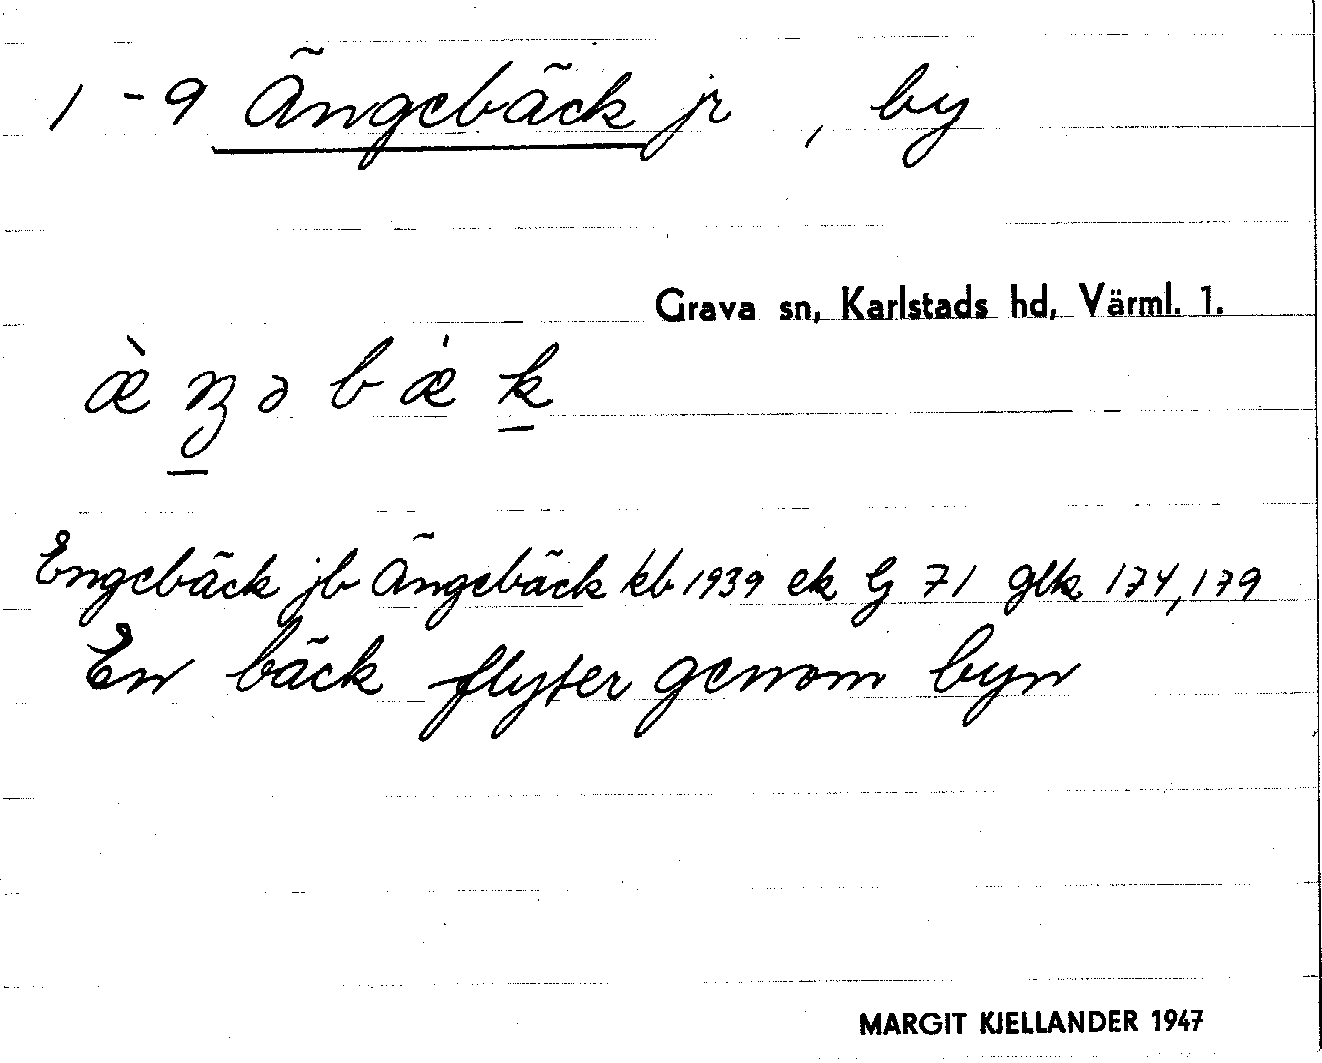 1-9 Ängebäck jr , by
Grava sn, Karlstads hd, Värml. 1.
æ̀ ŋ ə b æ̍ k
Engebäck jb Ängebäck kb 1939 ek G 71 glk 174,179
En bäck flyter genom byn
MARGIT KJELLANDER 1947